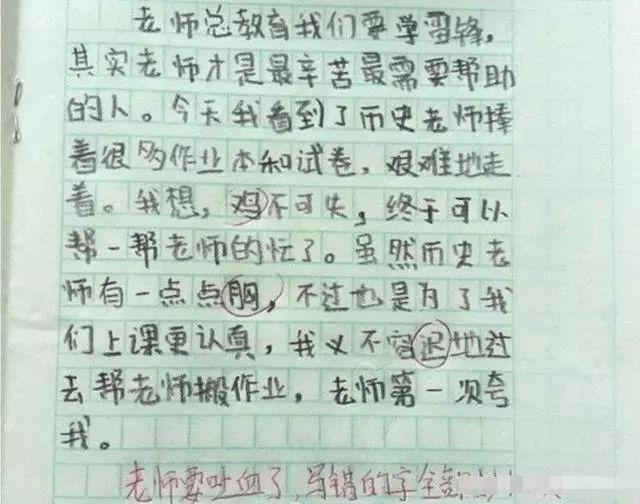 老师总教育我们要学雷锋,
其实老师才是最辛苦最需要帮助
的人。今天我看到了而史老师捧
着很多作业本和试卷,艰难地走
着。我想,鸡不可失,终于可以
帮一帮老师的忙了。虽然而史老
师有一点点胸,不过也是为了我
们上课更认真,我义不容迟地过
去帮老师搬作业,老师第一次夸
我。
老师要吐血了,写错的字全部